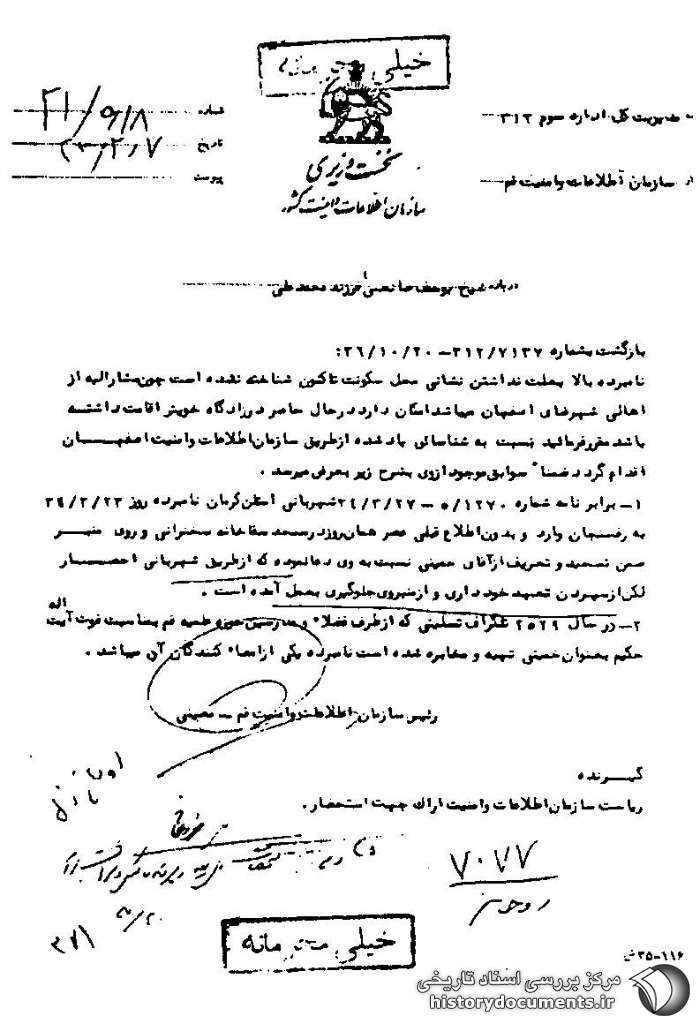 خیلی محرمانه
مدیریت کل اداره سوم ۳۱۲
شماره ۲۱/۵۱۸
تاریخ
پیوست
نخست وزیری
سازمان اطلاعات و امنیت کشور
از سازمان اطلاعات و امنیت قم
درباره شیخ یوسف صانعی فرزند محمدعلی
بازگشت بشماره ۳۱۲/۷۱۳۷ – ۳۶/۱۰/۲۰:
نامبرده بالا بعلت نداشتن نشانی محل سکونت تاکنون شناخته نشده است چون مشارالیه از
اهالی شهرضای اصفهان میباشد امکان دارد در حال حاضر در زادگاه خویش اقامت داشته
باشد مقرر فرمائید نسبت به شناسائی یاد شده از طریق سازمان اطلاعات و امنیت اصفهان
اقدام گردد ضمنا" سوابق موجود از وی بشرح زیر بعرض میرسد .
۱– برابر نامه شماره ۵/۱۲۷۰ – ۳۴/۳/۲۷ شهربانی استان کرمان نامبرده روز ۳۴/۳/۲۳
به رفسنجان وارد و بدون اطلاع قبلی عصر همان روز در مسجد سقاخانه سخنرانی و روی منبر
ضمن تمجید و تعریف از آقای خمینی نسبت به وی دعا نموده که از طریق شهربانی احضار
لکن از سپردن تعهد خودداری و از منبر وی جلوگیری بعمل آمده است .
۲– در سال ۲۵۲۹ تلگراف تسلیتی که از طرف فضلا" و مدرسین حوزه علمیه قم بمناسبت فوت آیت اله
حکیم بعنوان خمینی تهیه و مخابره شده است نامبرده یکی از امضا" کنندگان آن میباشد .
رئیس سازمان اطلاعات و امنیت قم – معینی
گیرنده
ریاست سازمان اطلاعات و امنیت اراک جهت استحضار .
۷۰۷۷
۲۷۱
خیلی محرمانه
۳۵–۱۱۶
مرکز بررسی اسناد تاریخی
historydocuments.ir